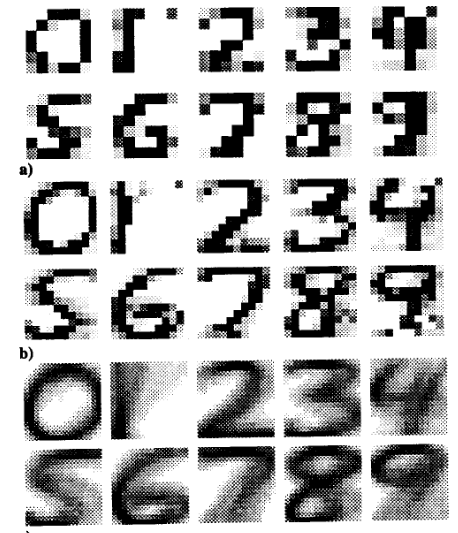 0 1 2 3 4
5 6 7 8 9
a)
0 1 2 3 4
5 6 7 8 9
b)
0 1 2 3 4
5 6 7 8 9